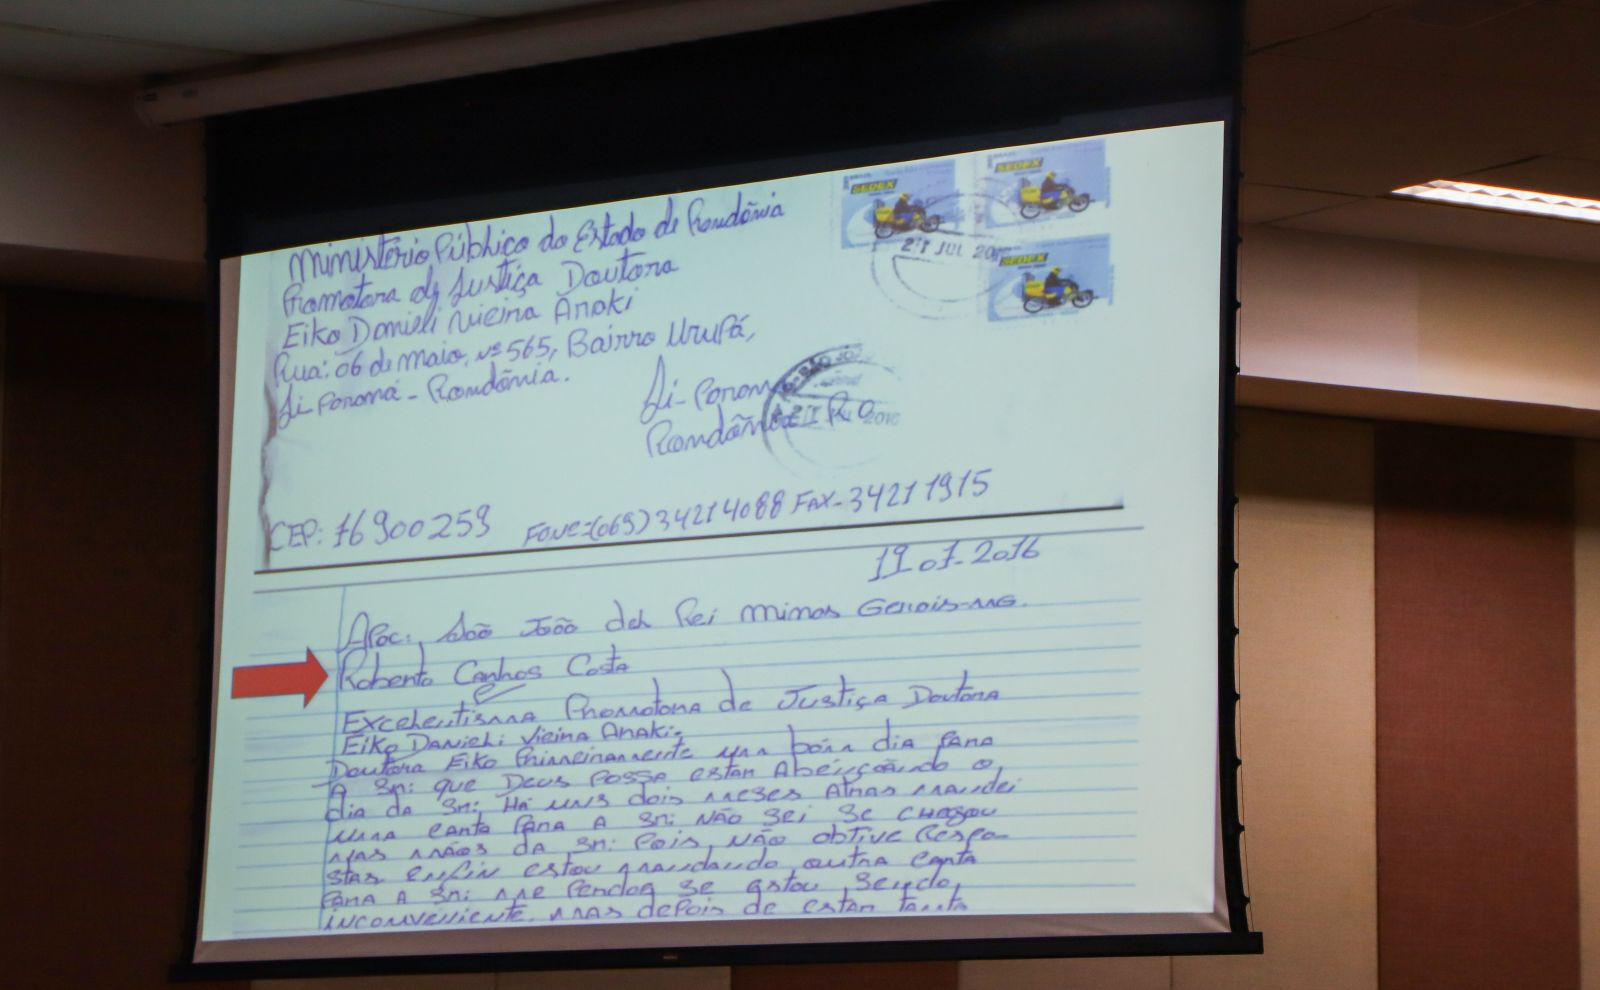 Ministério Público do Estado de Rondônia
Promotora de Justiça Doutora
Eiko Danieli Vieira Araki
Rua: 06 de maio, nº 565, Bairro Urupá,
Ji-Paraná - Rondônia.
Ji-Paran
Rondônia RO
SEDEX
SEDEX
SEDEX
BRASIL
21 JUL 20
SÃO JOÃ
2016
CEP: 76900259 FONE=(069)34214088 FAX-34211915
19.07.2016
Apac: São João del Rei Minas Gerais-MG.
Roberto Canhos Costa
Excelentisma Promotora de Justiça Doutora
Eiko Danieli Vieira Araki,
Doutora Eiko Primeiramente um bom dia para
A Sr: que Deus possa estar Abençoando o
dia da Sr: Há uns dois meses Atras mandei
uma carta para A Sr: não sei se chegou
nas mãos da Sr: Pois, não obtive Respo-
stas enfin estou mandando outra carta
para A Sr: me Perdoa se estou sendo
inconveniente, mas depois de estar tanto